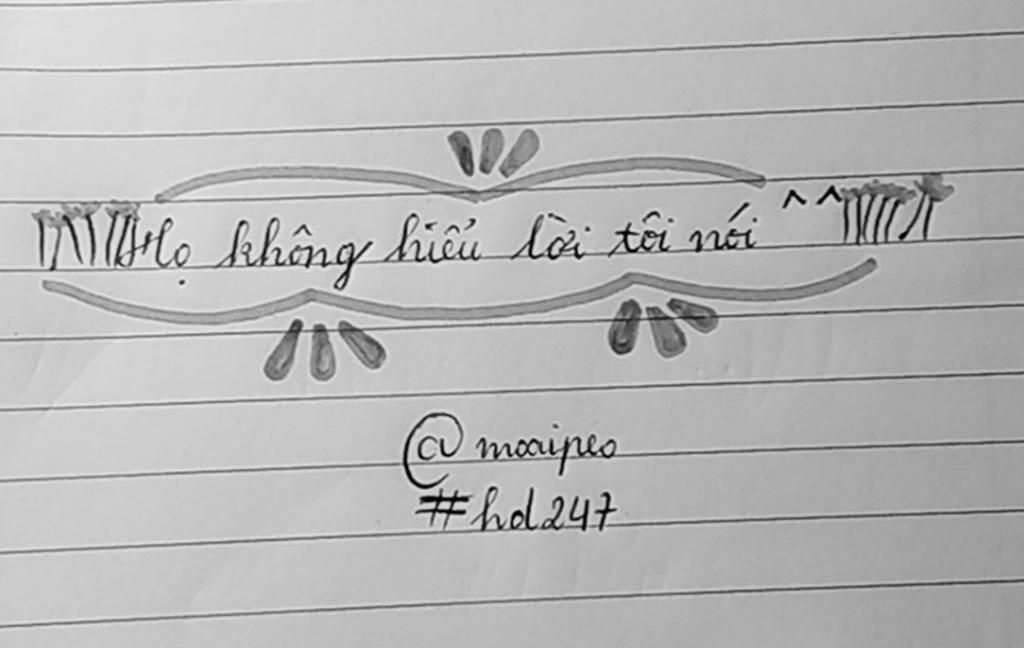 Họ không hiểu lời tôi nói ^ ^
@maipeo
#hd247